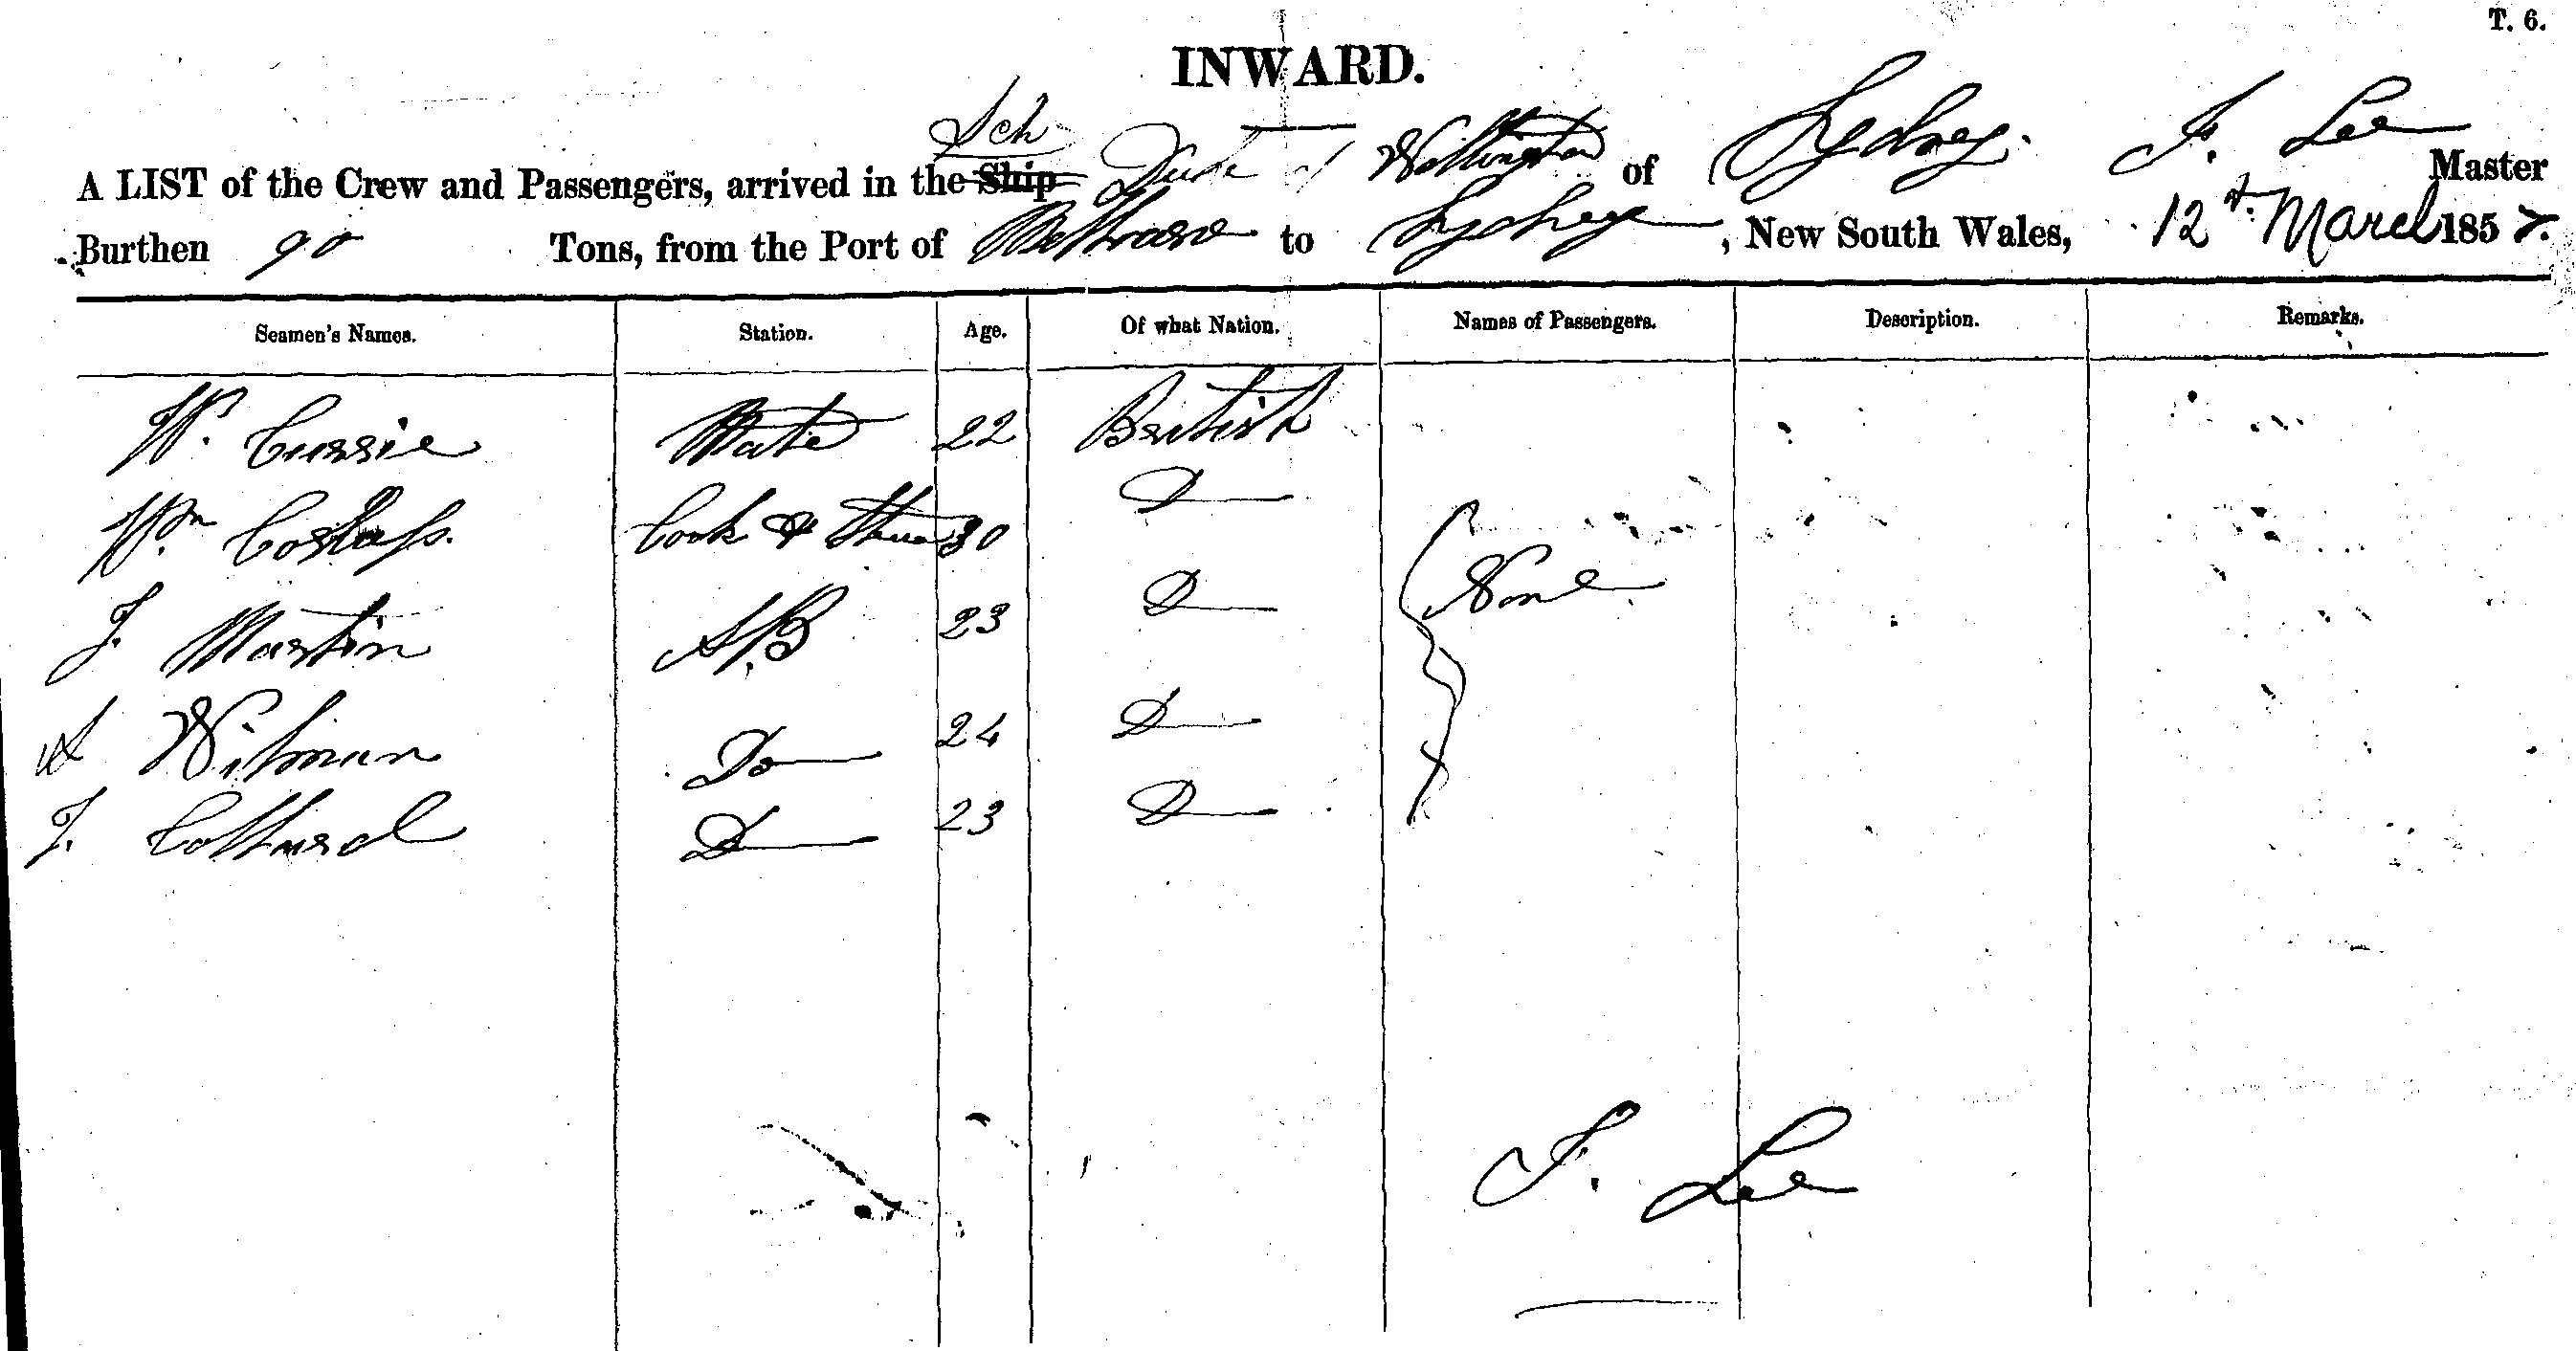 T. 6.
INWARD.
Sch
A LIST of the Crew and Passengers, arrived in the Ship Duke of Wellington of Sydney. F. Lee Master
Burthen 90 Tons, from the Port of to Sydney, New South Wales, 12th March 1857.
Seamen's Names. Station. Age. Of what Nation. Names of Passengers. Description. Remarks.
W. Currie Mate 22 British
Wm Cook & 30 D
J. Martin A,B 23 D None.
A Do 24 D
J. D 23 D
F. Lee